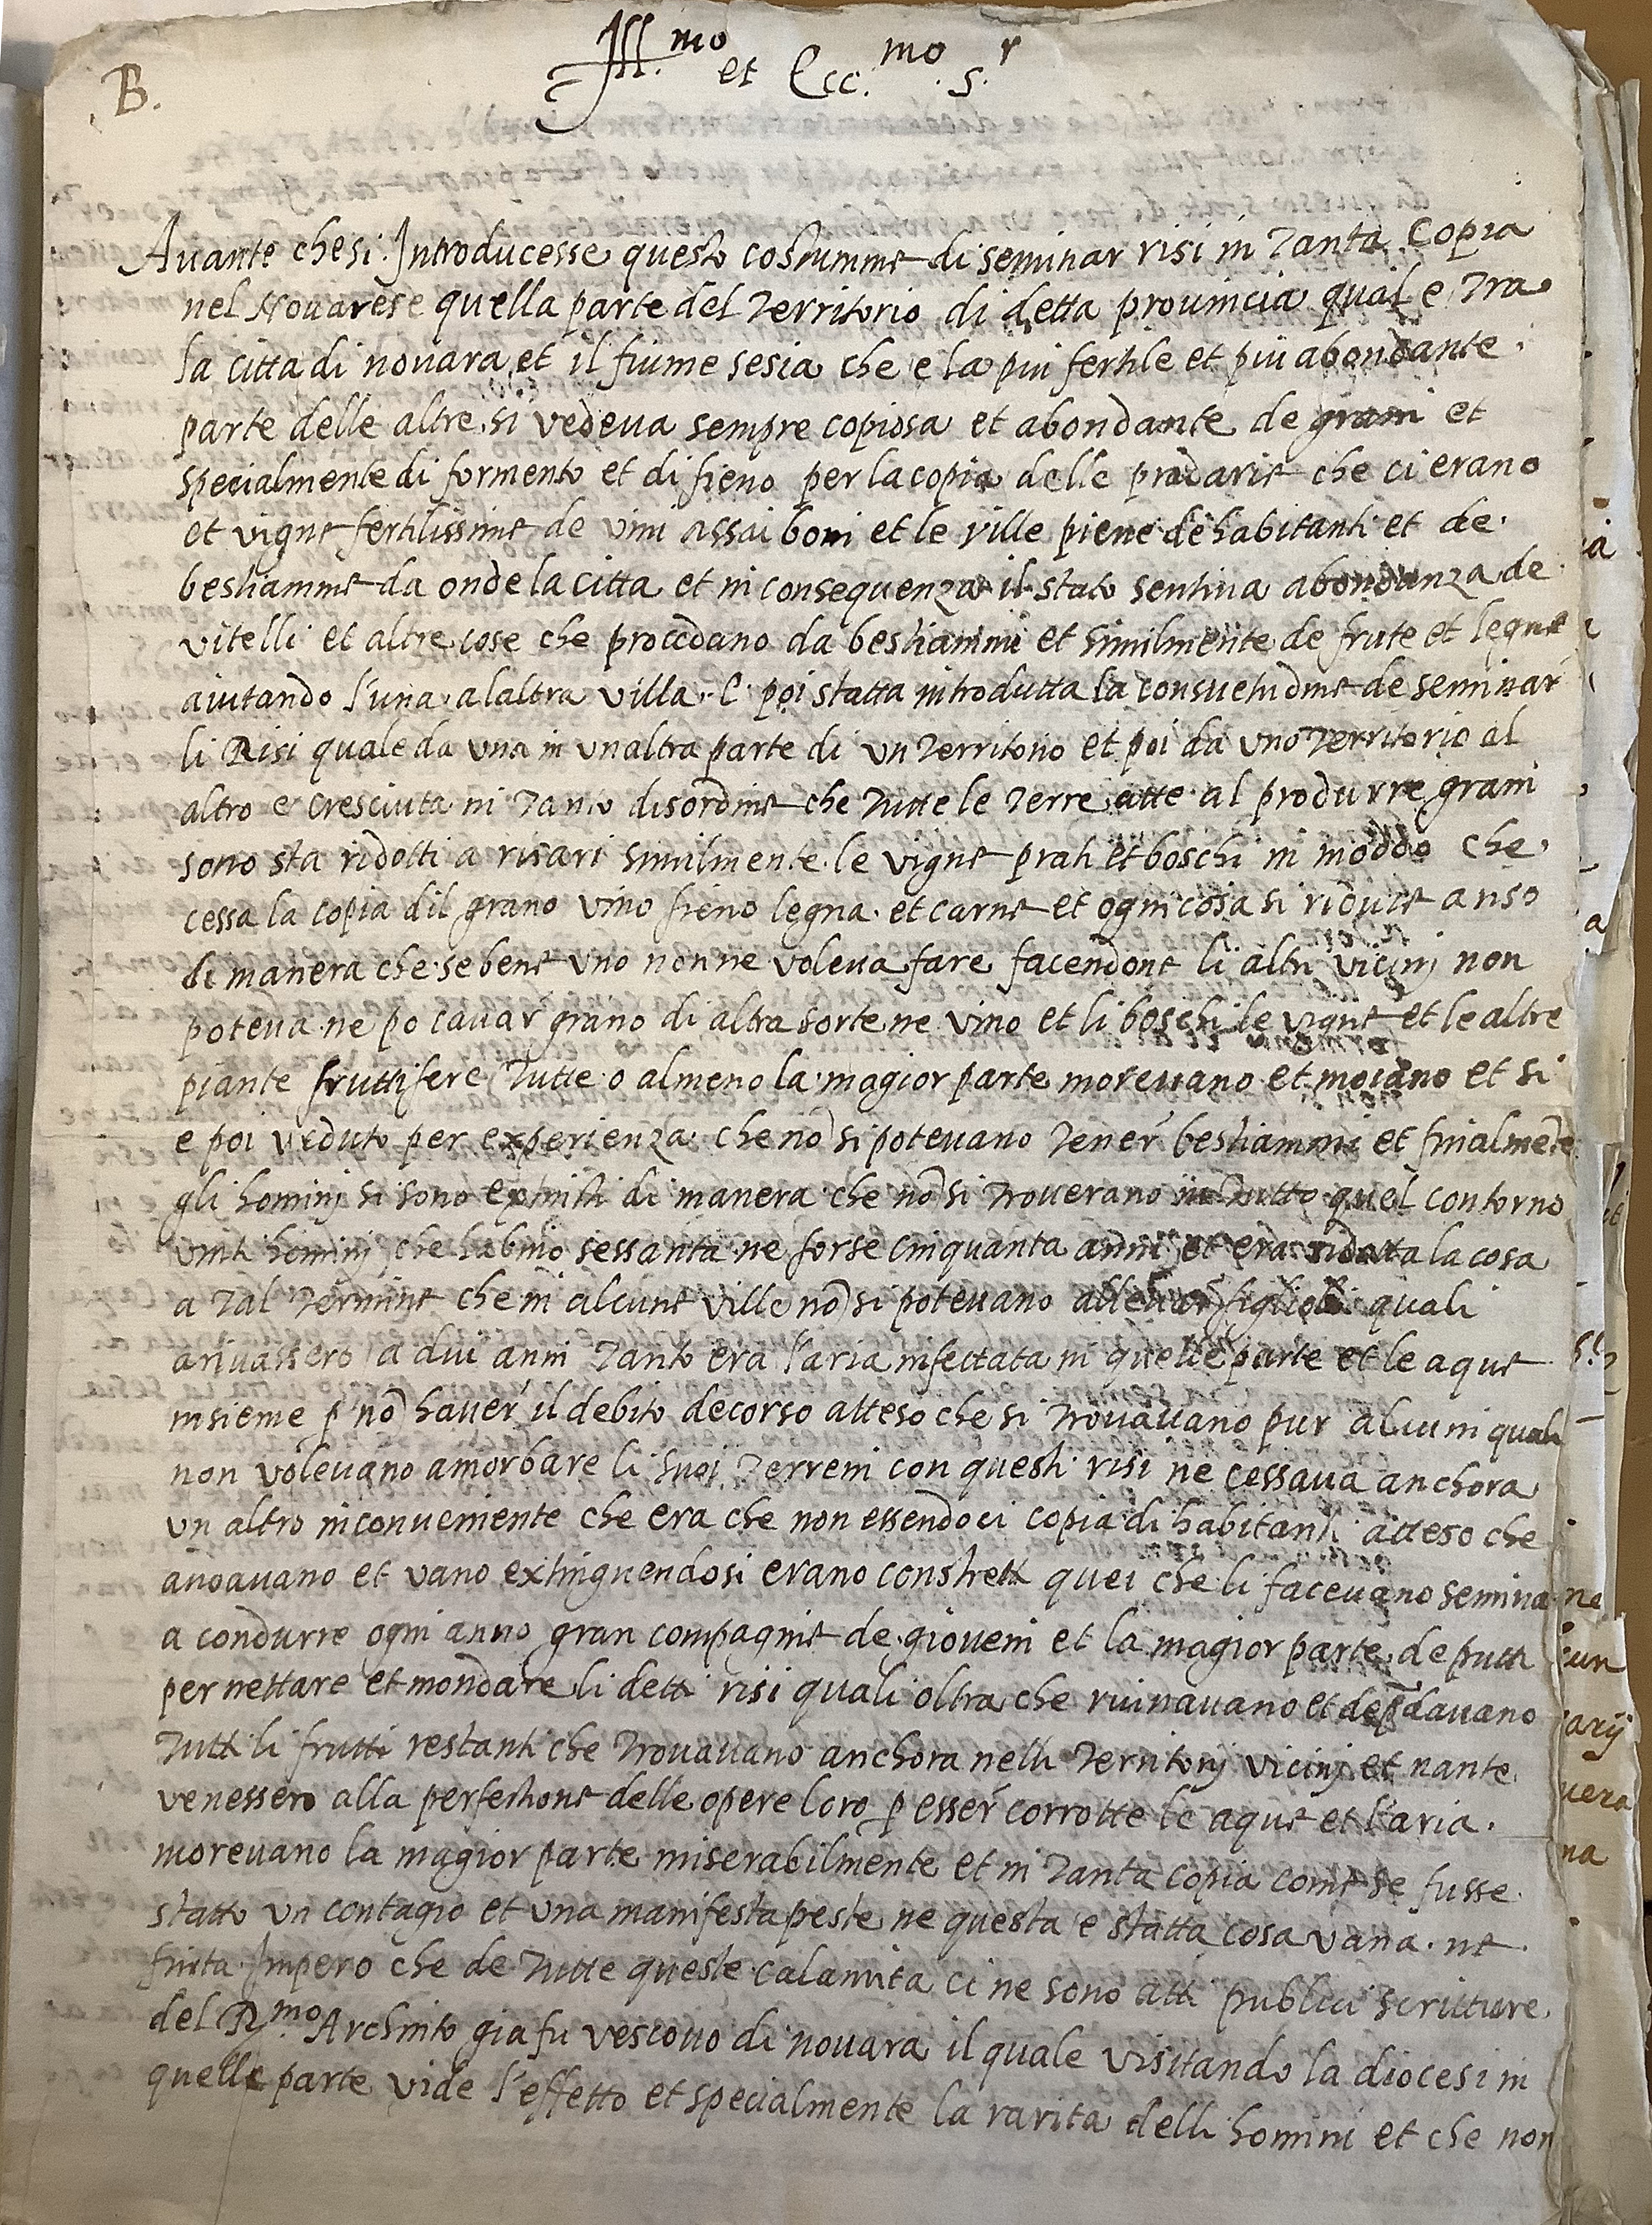 B.
Ill.mo et Ecc.mo S.r
Auante che si Introducesse questo costumme di seminar risi in tanta copia
nel Nouarese quella parte del territorio di detta prouincia qual e tra
la citta di nouara et il fiume sesia che e la piu fertile et piu abondante
parte delle altre si vedeua sempre copiosa et abondante de grani et
specialmente di formento et di fieno per la copia delle pradarie che ci erano
et vigne fertilissime de vini assai boni et le ville piene de habitanti et de
bestiamme da onde la citta et in consequenza il stato sentiua abondanza de
vitelli et altre cose che procedano da bestiammi et similmente de frute et legne
aiutando l'una a laltra villa. E poi statta introdutta la consuetudine de seminar
li Risi quale da una in unaltra parte di un territorio et poi da uno territorio al
altro e cresciuta in tanto disordine che tutte le terre atte al produrre grani
sono sta ridotti a risari similmente le vigne prati et boschi in moddo che
cessa la copia dil grano vino fieno legna et carne et ogni cosa si riduce a riso
di manera che se bene uno non ne voleua fare facendone li altri vicinj non
poteua ne po cauar grano di altra sorte ne vino et li boschi le vigne et le altre
piante fruttifere tutte o almeno la magior parte moreuano et moiano et si
e poi veduto per experienza che nõ si poteuano tener bestiammi et finialmẽte
gli hominj si sono extinti di manera che nõ si trouerano in tutto quel contorno
vinti hominj che habino sessanta ne forse cinquanta anni et era ridotta la cosa
a tal termine che in alcune ville nõ si poteuano alleuar figlioli quali
ariuassero a dui anni tanto era l'aria infettata in quelle parte et le aque
insieme p nõ hauer il debito decorso atteso che si trouauano pur alcuni quali
non voleuano amorbare li suoi terreni con questi risi ne cessaua anchora
un altro inconueniente che era che non essendoci copia di habitanti atteso che
andauano et vano extinguendosi erano constretti quei che li faceuano semina
a condurre ogni anno gran compagnie de gioueni et la magior parte de putti
per nettare et mondare li detti risi quali oltra che ruinauano et depdauano
tutti li frutti restanti che trouauano anchora nelli territorij vicinj et nante
venessero alla perfectione delle opere loro p esser corrotte le aque et l'aria.
moreuano la magior parte miserabilmente et in tanta copia come se fusse
statto un contagio et una manifesta peste ne questa e statta cosa vana. ne
finta Impero che de tutte queste calamita ci ne sono atti publici scritture
del R.mo Archinto gia fu vescouo di nouara il quale visitando la diocesi in
quelle parte vide l'effetto et specialmente la rarita delli homini et che non